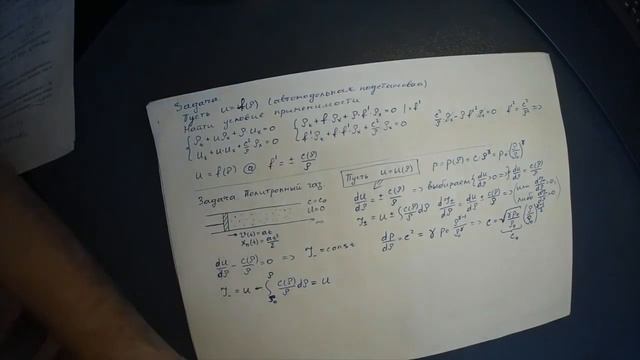 Задача
Пусть u = f(ρ) (автомодельная подстановка)
Найти условие применимости
{ ρ_t + u ρ_x + ρ u_x = 0
u_t + u·u_x + c²/ρ ρ_x = 0
{ ρ_t + f ρ_x + ρ·f' ρ_x = 0 | × f'
f' ρ_t + f·f' ρ_x + c²/ρ ρ_x = 0
c²/ρ ρ_x − ρ f'² ρ_x = 0 f'² = c²/ρ² ⇒
u = f(ρ) f' = ± c(ρ)/ρ
Задача Политропный газ.
c = c₀
u = 0
V(t) = at
x_п(t) = at²/2
du/dρ − c(ρ)/ρ = 0 ⇒ J₋ = const
J₋ = u − ∫_{ρ₀}^{ρ} c(ρ)/ρ dρ = u
Пусть u = u(ρ)
p = p(ρ) = c·ρ^γ = p₀ (ρ/ρ₀)^γ
du/dρ = ± c(ρ)/ρ ⇒ выбираем { du/dρ > 0 ⇒ } du/dρ = c(ρ)/ρ
J± = u ± ∫ c(ρ)/ρ dρ dJ±/dρ = du/dρ ± c(ρ)/ρ ⇒ (или dJ₊/dρ = 0, либо dJ₋/dρ = 0)
dp/dρ = c² = γ p₀ ρ^{γ−1}/ρ₀^γ ⇒ c =
c₀